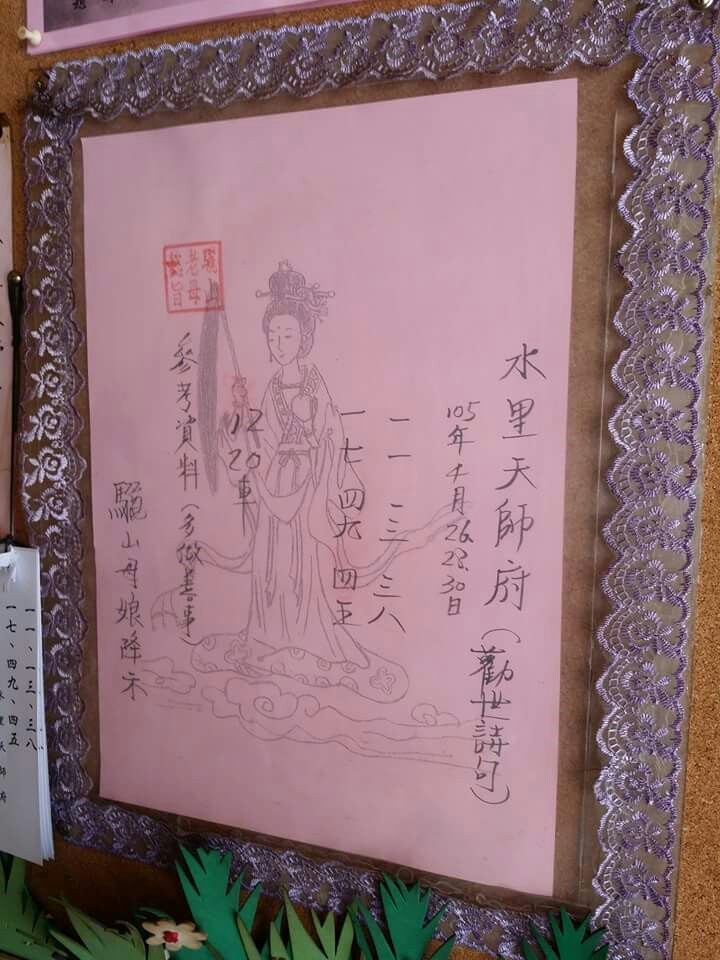 水里天師府(勸世詩句)
105年十月26.28.30日
一一 一三 三八
一七 四九 四五
12 20車
參考資料(多做善事)
驪山母娘降示
驪山
老母
懿旨
一一、一三、三八
一七、四九、四五
水里天師府